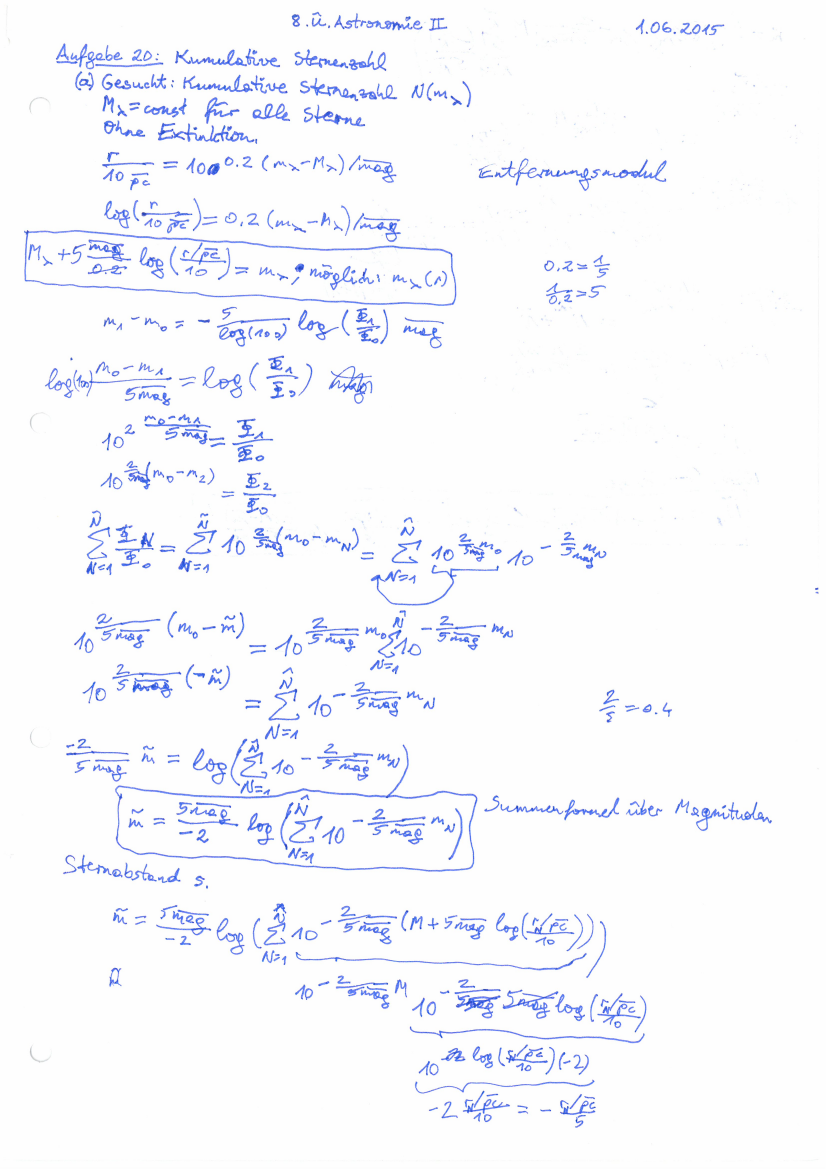 8. Ü. Astronomie II 1.06.2015
Aufgabe 20: Kumulative Sternenzahl
(a) Gesucht: Kumulative Sternenzahl N(m_λ)
M_λ = const für alle Sterne
Ohne Extinktion.
r/(10 pc) = 10^0.2 (m_λ - M_λ)/mag Entfernungsmodul
log(r/(10 pc)) = 0,2 (m_λ - M_λ)/mag
M_λ + 5 mag log((r/pc)/10) = m_λ, möglich: m_λ(r)
0.2 = 1/5
1/0.2 = 5
m_1 - m_0 = - 5/log(100) log(Φ_1/Φ_0) mag
log(100) (m_0 - m_1)/(5 mag) = log(Φ_1/Φ_0)
10^(2 (m_0 - m_1)/(5 mag)) = Φ_1/Φ_0
10^(2/(5 mag) (m_0 - m_2)) = Φ_2/Φ_0
∑_{N=1}^{N̂} Φ_N/Φ_0 = ∑_{N=1}^{N̂} 10^(2/(5 mag) (m_0 - m_N)) = ∑_{N=1}^{N̂} 10^(2/(5 mag) m_0) 10^(- 2/(5 mag) m_N)
10^(2/(5 mag) (m_0 - m̃)) = 10^(2/(5 mag) m_0) ∑_{N=1}^{N̂} 10^(- 2/(5 mag) m_N)
10^(2/(5 mag) (-m̃)) = ∑_{N=1}^{N̂} 10^(- 2/(5 mag) m_N) 2/5 = 0.4
-2/(5 mag) m̃ = log(∑_{N=1}^{N̂} 10^(- 2/(5 mag) m_N))
m̃ = (5 mag)/(-2) log(∑_{N=1}^{N̂} 10^(- 2/(5 mag) m_N)) Summenformel über Magnituden
Sternabstand s.
m̃ = (5 mag)/(-2) log(∑_{N=1}^{N̂} 10^(- 2/(5 mag) (M + 5 mag log((r_N/pc)/10))))
10^(- 2/(5 mag) M) 10^(- 2/(5 mag) 5 mag log((r_N/pc)/10))
10^(log((r_N/pc)/10) (-2))
-2 (r_N/pc)/10 = - (r_N/pc)/5